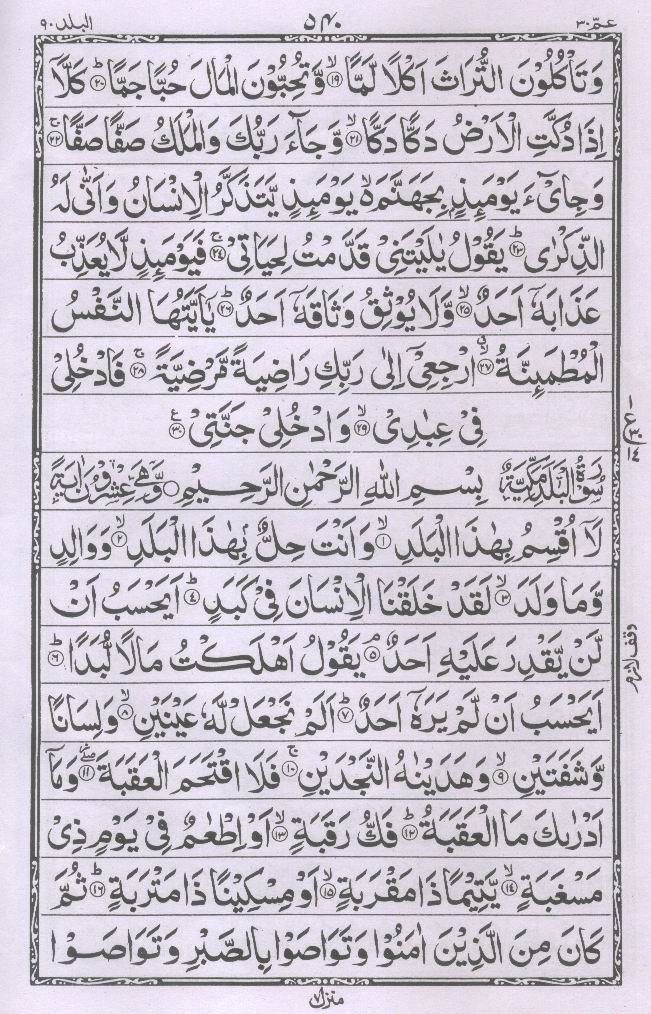 البلد ٩٠ ٥٤٠ عمّ ٣٠
وَتَاْكُلُوْنَ التُّرَاثَ اَكْلًا لَّمًّا ۙ﴿۱۹﴾ وَّتُحِبُّوْنَ الْمَالَ حُبًّا جَمًّا ؕ﴿۲۰﴾ كَلَّاۤ
اِذَا دُكَّتِ الْاَرْضُ دَكًّا دَكًّا ۙ﴿۲۱﴾ وَّجَآءَ رَبُّكَ وَالْمَلَكُ صَفًّا صَفًّا ۚ﴿۲۲﴾
وَجِایْٓءَ يَوْمَئِذٍۭ بِجَهَنَّمَ ۙ۬ يَوْمَئِذٍ يَّتَذَكَّرُ الْاِنْسَانُ وَاَنّٰى لَهُ
الذِّكْرٰى ؕ﴿۲۳﴾ يَقُوْلُ يٰلَيْتَنِىْ قَدَّمْتُ لِحَيَاتِىْ ۚ﴿۲۴﴾ فَيَوْمَئِذٍ لَّا يُعَذِّبُ
عَذَابَهٗۤ اَحَدٌ ۙ﴿۲۵﴾ وَّلَا يُوْثِقُ وَثَاقَهٗۤ اَحَدٌ ؕ﴿۲۶﴾ يٰۤاَيَّتُهَا النَّفْسُ
الْمُطْمَئِنَّةُ ۖۗ﴿۲۷﴾ ارْجِعِىْۤ اِلٰى رَبِّكِ رَاضِيَةً مَّرْضِيَّةً ۚ﴿۲۸﴾ فَادْخُلِىْ
فِىْ عِبٰدِىْ ۙ﴿۲۹﴾ وَادْخُلِىْ جَنَّتِىْ ﴿۳۰﴾ ع
سُوْرَةُ الْبَلَدِ مَكِّيَّةٌ بِسْمِ اللهِ الرَّحْمٰنِ الرَّحِيْمِ ○ وَّهِىَ عِشْرُوْنَ اٰيَةً
لَاۤ اُقْسِمُ بِهٰذَا الْبَلَدِ ۙ﴿۱﴾ وَاَنْتَ حِلٌّۢ بِهٰذَا الْبَلَدِ ۙ﴿۲﴾ وَوَالِدٍ
وَّمَا وَلَدَ ۙ﴿۳﴾ لَقَدْ خَلَقْنَا الْاِنْسَانَ فِىْ كَبَدٍ ؕ﴿۴﴾ اَيَحْسَبُ اَنْ
لَّنْ يَّقْدِرَ عَلَيْهِ اَحَدٌ ۘ﴿۵﴾ يَقُوْلُ اَهْلَكْتُ مَالًا لُّبَدًا ؕ﴿۶﴾
وقف لازم
اَيَحْسَبُ اَنْ لَّمْ يَرَهٗۤ اَحَدٌ ؕ﴿۷﴾ اَلَمْ نَجْعَلْ لَّهٗ عَيْنَيْنِ ۙ﴿۸﴾ وَلِسَانًا
وَّشَفَتَيْنِ ۙ﴿۹﴾ وَهَدَيْنٰهُ النَّجْدَيْنِ ۚ﴿۱۰﴾ فَلَا اقْتَحَمَ الْعَقَبَةَ ۖ﴿۱۱﴾ وَمَاۤ
اَدْرٰىكَ مَا الْعَقَبَةُ ؕ﴿۱۲﴾ فَكُّ رَقَبَةٍ ۙ﴿۱۳﴾ اَوْ اِطْعٰمٌ فِىْ يَوْمٍ ذِىْ
مَسْغَبَةٍ ۙ﴿۱۴﴾ يَّتِيْمًا ذَا مَقْرَبَةٍ ۙ﴿۱۵﴾ اَوْ مِسْكِيْنًا ذَا مَتْرَبَةٍ ؕ﴿۱۶﴾ ثُمَّ
كَانَ مِنَ الَّذِيْنَ اٰمَنُوْا وَتَوَاصَوْا بِالصَّبْرِ وَتَوَاصَوْا
منزل ٧